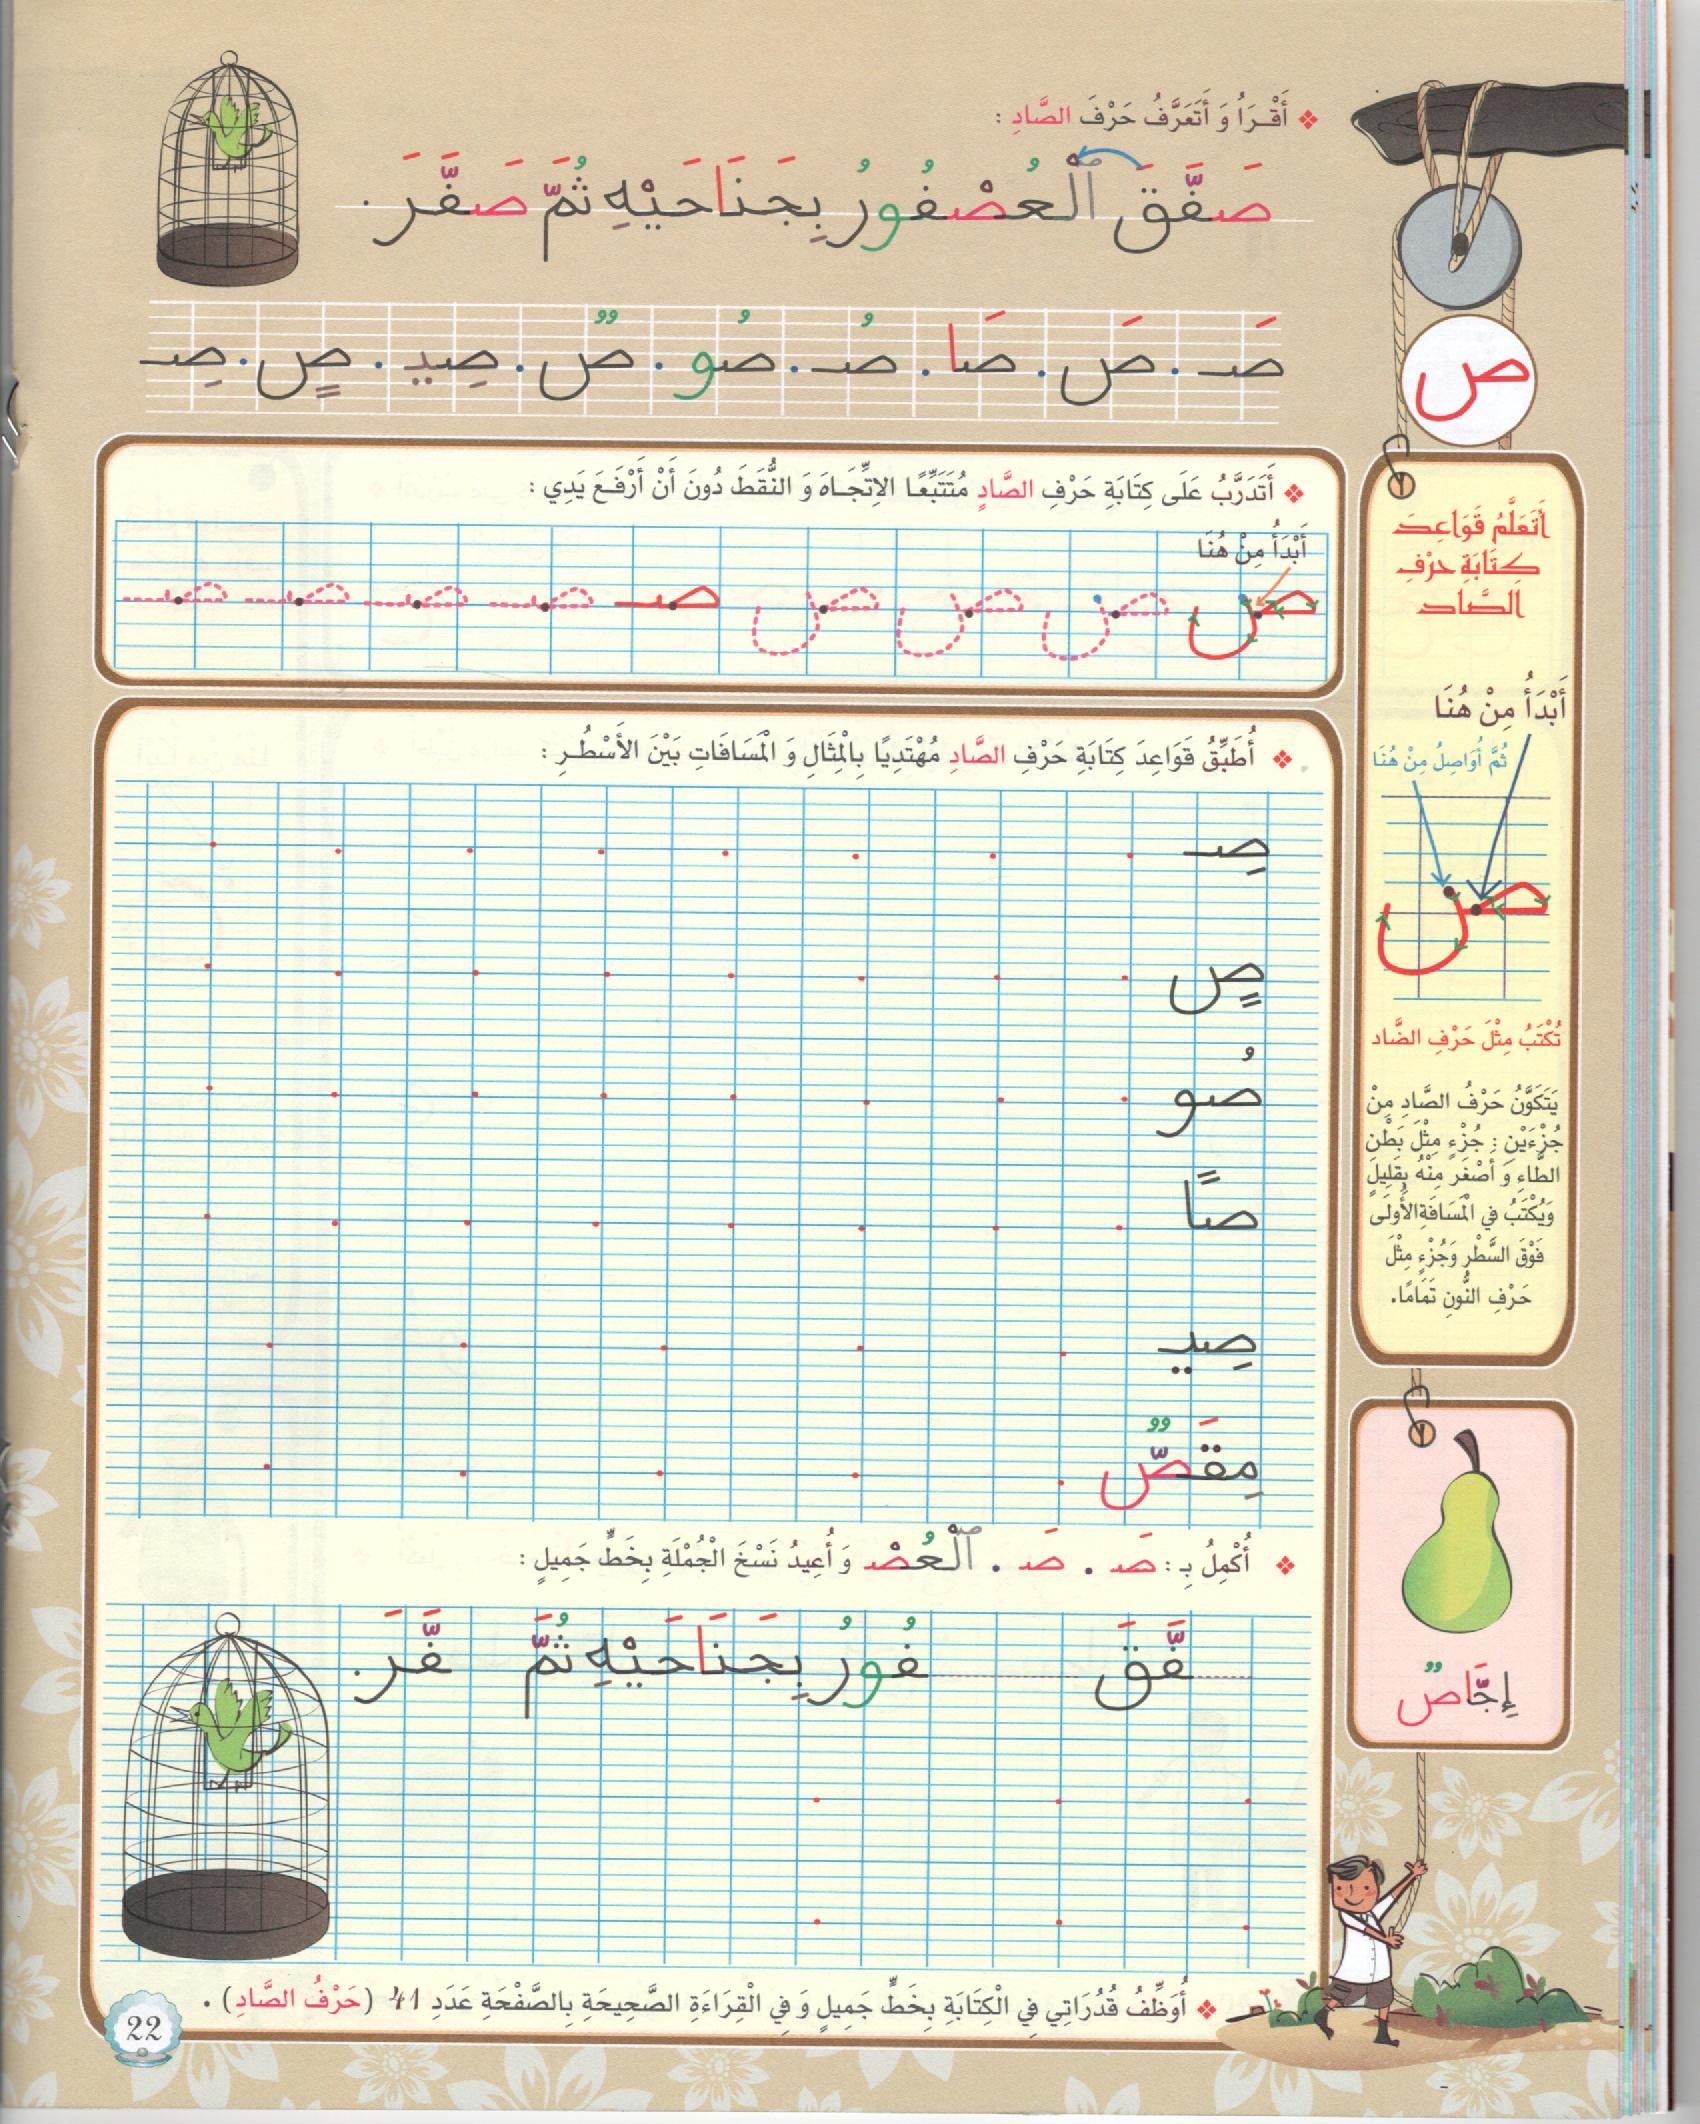 أَقْرَأُ وَ أَتَعَرَّفُ حَرْفَ الصَّادِ :
صَفَّقَ ٱلْعُصْفُورُ بِجَنَاحَيْهِ ثُمَّ صَفَّرَ.
صَـ . صَ . صَا . صُـ . صُو . صٌ . صِيـ . صٍ . صِـ
ص
أَتَدَرَّبُ عَلَى كِتَابَةِ حَرْفِ الصَّادِ مُتَتَبِّعًا الاِتِّجَاهَ وَ النُّقَطَ دُونَ أَنْ أَرْفَعَ يَدِي :
أَبْدَأُ مِنْ هُنَا
ص ص ص ص صـ صـ صـ صـ صـ
أَتَعَلَّمُ قَوَاعِدَ
كِتَابَةِ حَرْفِ
الصَّاد
أَبْدَأُ مِنْ هُنَا
ثُمَّ أُوَاصِلُ مِنْ هُنَا
ص
تُكْتَبُ مِثْلَ حَرْفِ الضَّاد
يَتَكَوَّنُ حَرْفُ الصَّادِ مِنْ
جُزْءَيْنِ : جُزْءٍ مِثْلَ بَطْنِ
الطَّاءِ وَ أَصْغَرَ مِنْهُ بِقَلِيلٍ
وَيُكْتَبُ فِي الْمَسَافَةِ الأُولَى
فَوْقَ السَّطْرِ وَجُزْءٍ مِثْلَ
حَرْفِ النُّونِ تَمَامًا.
إِجَّاصٌ
أُطَبِّقُ قَوَاعِدَ كِتَابَةِ حَرْفِ الصَّادِ مُهْتَدِيًا بِالْمِثَالِ وَ الْمَسَافَاتِ بَيْنَ الأَسْطُرِ :
صِـ
صٍ
صُو
صًا
صِيـ
مِقَصٌّ
أُكْمِلُ بِـ : صَـ . صَـ . ٱلْعُصْـ وَ أُعِيدُ نَسْخَ الْجُمْلَةِ بِخَطٍّ جَمِيلٍ :
فَّقَ فُورُ بِجَنَاحَيْهِ ثُمَّ فَّرَ.
أُوَظِّفُ قُدُرَاتِي فِي الْكِتَابَةِ بِخَطٍّ جَمِيلٍ وَ فِي الْقِرَاءَةِ الصَّحِيحَةِ بِالصَّفْحَةِ عَدَدِ 41 (حَرْفُ الصَّادِ) .
22